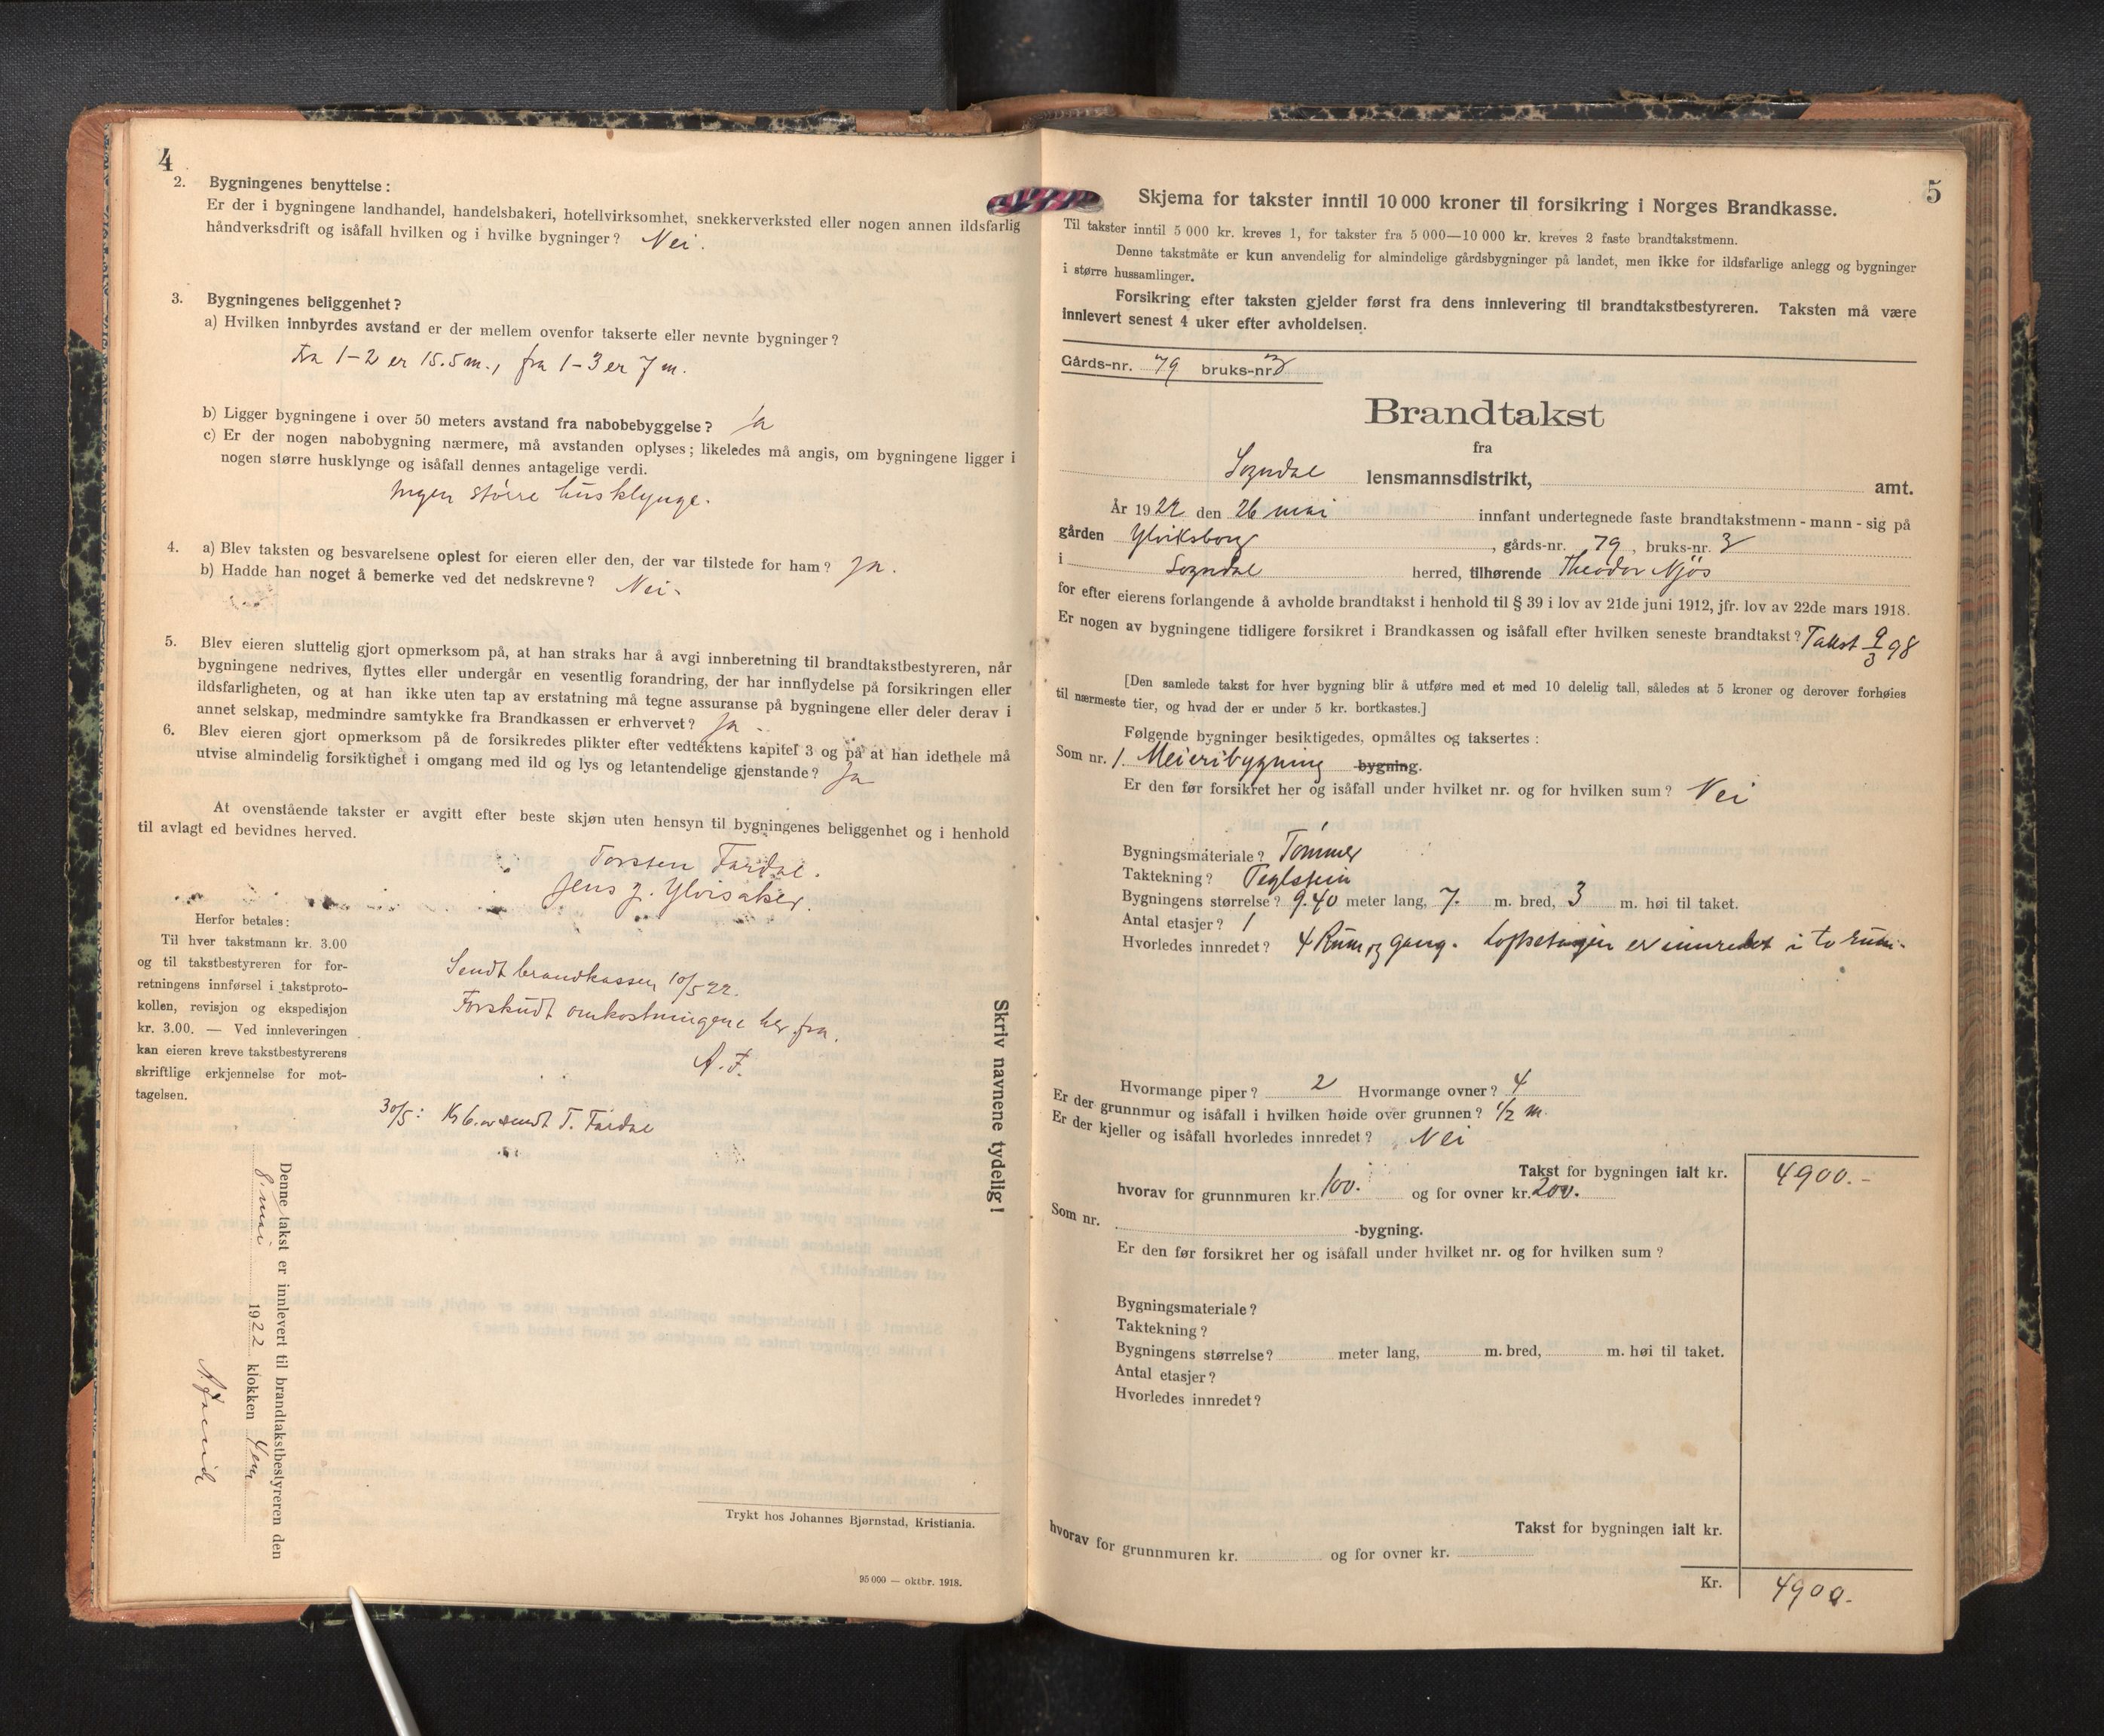 4
2. Bygningenes benyttelse:
Er der i bygningene landhandel, handelsbakeri, hotellvirksomhet, snekkerverksted eller nogen annen ildsfarlig
håndverksdrift og isåfall hvilken og i hvilke bygninger? Nei.
3. Bygningenes beliggenhet?
a) Hvilken innbyrdes avstand er der mellem ovenfor takserte eller nevnte bygninger?
Fra 1-2 er 15.5 m., fra 1-3 er 7 m.
b) Ligger bygningene i over 50 meters avstand fra nabobebyggelse? Ja
c) Er der nogen nabobygning nærmere, må avstanden oplyses; likeledes må angis, om bygningene ligger i
nogen større husklynge og isåfall dennes antagelige verdi.
Ingen större husklynge.
4. a) Blev taksten og besvarelsene oplest for eieren eller den, der var tilstede for ham? Ja.
b) Hadde han noget å bemerke ved det nedskrevne? Nei.
5. Blev eieren sluttelig gjort opmerksom på, at han straks har å avgi innberetning til brandtakstbestyreren, når
bygningene nedrives, flyttes eller undergår en vesentlig forandring, der har innflydelse på forsikringen eller
ildsfarligheten, og at han ikke uten tap av erstatning må tegne assuranse på bygningene eller deler derav i
annet selskap, medmindre samtykke fra Brandkassen er erhvervet? Ja
6. Blev eieren gjort opmerksom på de forsikredes plikter efter vedtektens kapitel 3 og på at han idethele må
utvise almindelig forsiktighet i omgang med ild og lys og letantendelige gjenstande? Ja
At ovenstående takster er avgitt efter beste skjøn uten hensyn til bygningenes beliggenhet og i henhold
til avlagt ed bevidnes herved.
Torsten Fardal.
Jens J. Ylvisaker.
Herfor betales:
Til hver takstmann kr. 3.00
og til takstbestyreren for for-
retningens innførsel i takstproto-
kollen, revisjon og ekspedisjon
kr. 3.00. — Ved innleveringen
kan eieren kreve takstbestyrerens
skriftlige erkjennelse for mot-
tagelsen.
Sendt brandkassen 10/5 22.
Forskudt omkostningene her fra.
A. F.
30/5: Kr 6. sendt T. Fardal
Skriv navnene tydelig!
Denne takst er innlevert til brandtakstbestyreren den
8. mai 1922 klokken 4 em
Trykt hos Johannes Bjørnstad, Kristiania.
95 000 — oktbr. 1918.
5
Skjema for takster inntil 10 000 kroner til forsikring i Norges Brandkasse.
Til takster inntil 5 000 kr. kreves 1, for takster fra 5 000—10 000 kr. kreves 2 faste brandtakstmenn.
Denne takstmåte er kun anvendelig for almindelige gårdsbygninger på landet, men ikke for ildsfarlige anlegg og bygninger
i større hussamlinger.
Forsikring efter taksten gjelder først fra dens innlevering til brandtakstbestyreren. Taksten må være
innlevert senest 4 uker efter avholdelsen.
Gårds-nr. 79 bruks-nr. 3
Brandtakst
fra
Sogndal lensmannsdistrikt, amt.
År 1922 den 26 mai innfant undertegnede faste brandtakstmenn - mann - sig på
gården Ylviksborg, gårds-nr. 79, bruks-nr. 3
i Sogndal herred, tilhørende Theodor Njøs
for efter eierens forlangende å avholde brandtakst i henhold til § 39 i lov av 21de juni 1912, jfr. lov av 22de mars 1918.
Er nogen av bygningene tidligere forsikret i Brandkassen og isåfall efter hvilken seneste brandtakst? Takst 9/3 98
[Den samlede takst for hver bygning blir å utføre med et med 10 delelig tall, således at 5 kroner og derover forhøies
til nærmeste tier, og hvad der er under 5 kr. bortkastes.]
Følgende bygninger besiktigedes, opmåltes og taksertes:
Som nr. 1. Meieribygning -bygning.
Er den før forsikret her og isåfall under hvilket nr. og for hvilken sum? Nei
Bygningsmateriale? Tömmer
Taktekning? Teglstein
Bygningens størrelse? 9.40 meter lang, 7. m. bred, 3 m. høi til taket.
Antal etasjer? 1
Hvorledes innredet? 4 Rum og gang. Loftsetagen er innredet i to rum.
Hvormange piper? 2 Hvormange ovner? 4
Er der grunnmur og isåfall i hvilken høide over grunnen? 1/2 m.
Er der kjeller og isåfall hvorledes innredet? Nei
Takst for bygningen ialt kr. 4900.-
hvorav for grunnmuren kr. 100. og for ovner kr. 200.
Som nr. -bygning.
Er den før forsikret her og isåfall under hvilket nr. og for hvilken sum?
Bygningsmateriale?
Taktekning?
Bygningens størrelse? meter lang, m. bred, m. høi til taket.
Antal etasjer?
Hvorledes innredet?
Takst for bygningen ialt kr.
hvorav for grunnmuren kr. og for ovner kr.
Kr. 4900.-